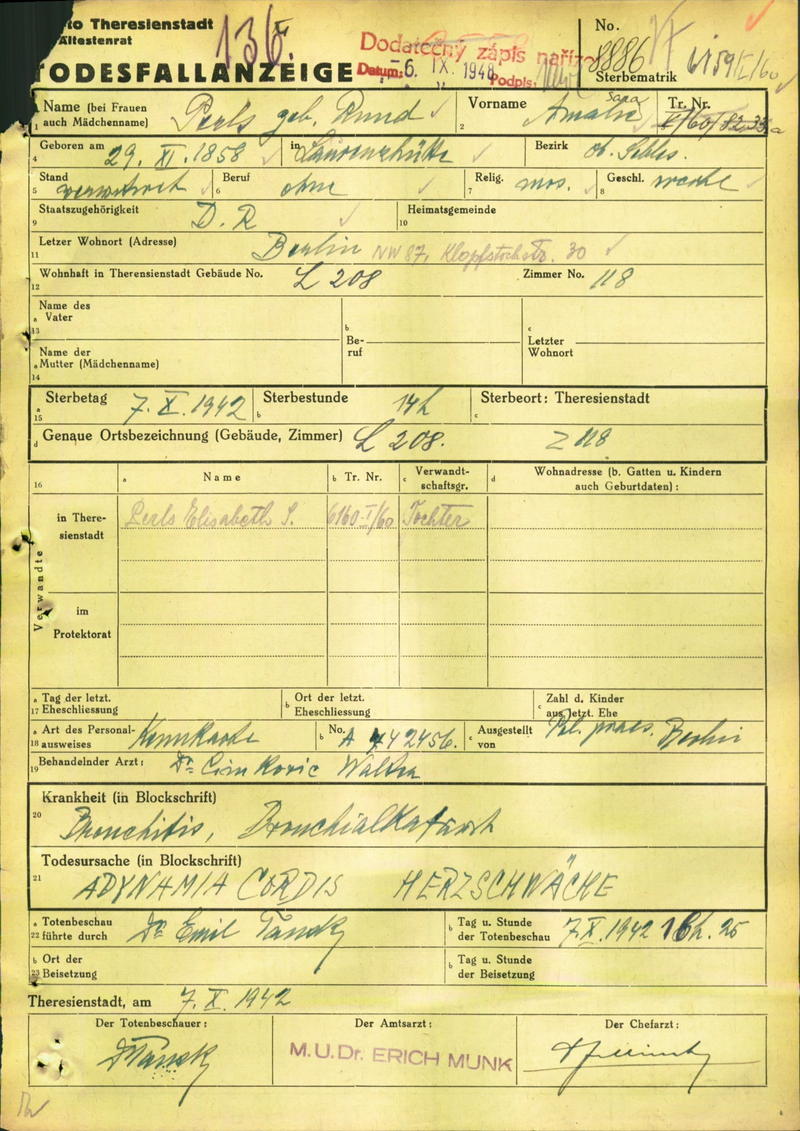 to Theresienstadt
Ältestenrat
136.
TODESFALLANZEIGE
Dodatečný zápis naříz
Datum: 6. IX. 194
Podpis:
No. 8886
Sterbematrik
Name (bei Frauen auch Mädchenname) Perls geb. Rund
Vorname Amalie Sara
Tr. Nr.
Geboren am 29. XI. 1858 in Laurenzhütte Bezirk ob. Schles.
Stand verwitwet Beruf ohne Relig. mos. Geschl.
Staatszugehörigkeit D. R Heimatsgemeinde
Letzer Wohnort (Adresse) Berlin NW 87, Klopfstockstr. 30
Wohnhaft in Theresienstadt Gebäude No. L 208 Zimmer No. 118
Name des Vater
Be-ruf
Letzter Wohnort
Name der Mutter (Mädchenname)
Sterbetag 7. X. 1942 Sterbestunde 14h Sterbeort: Theresienstadt
Genaue Ortsbezeichnung (Gebäude, Zimmer) L 208. Z 118
16 a Name b Tr. Nr. c Verwandt-schaftsgr. d Wohnadresse (b. Gatten u. Kindern auch Geburtdaten):
Verwandte
in There-sienstadt Perls Elisabeth S. 6160-I/60 Tochter
im Protektorat
17 a Tag der letzt. Eheschliessung b Ort der letzt. Eheschliessung c Zahl d. Kinder aus letzt. Ehe
18 a Art des Personal-ausweises Kennkarte b No. A 442456. c Ausgestellt von Pol. praes. Berlin
19 Behandelnder Arzt: Dr Walter
Krankheit (in Blockschrift)
20 Bronchitis, Bronchialkatarrh
Todesursache (in Blockschrift)
21 ADYNAMIA CORDIS HERZSCHWÄCHE
22 a Totenbeschau führte durch Dr Emil Tansky b Tag u. Stunde der Totenbeschau 7. X. 1942 16h. 25
23 b Ort der Beisetzung b Tag u. Stunde der Beisetzung
Theresienstadt, am 7. X. 1942
Der Totenbeschauer: Der Amtsarzt: Der Chefarzt:
M.U.Dr. ERICH MUNK